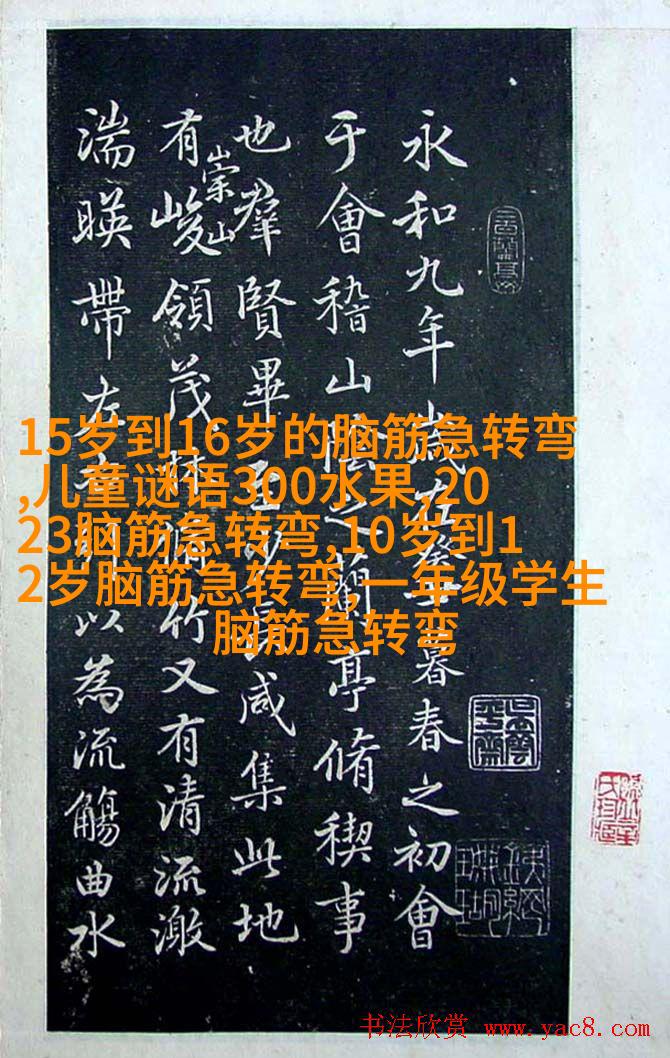 永和九年歲在癸丑暮春之初會
于會稽山陰之蘭亭脩稧事
也羣賢畢至少長咸集此地
有崇山峻領茂林脩竹又有清流激
湍暎帶左右引以為流觴曲水
15岁到16岁的脑筋急转弯
,儿童谜语300水果,20
23脑筋急转弯,10岁到1
2岁脑筋急转弯,一年级学生
脑筋急转弯
书法欣赏 www.yac8.com